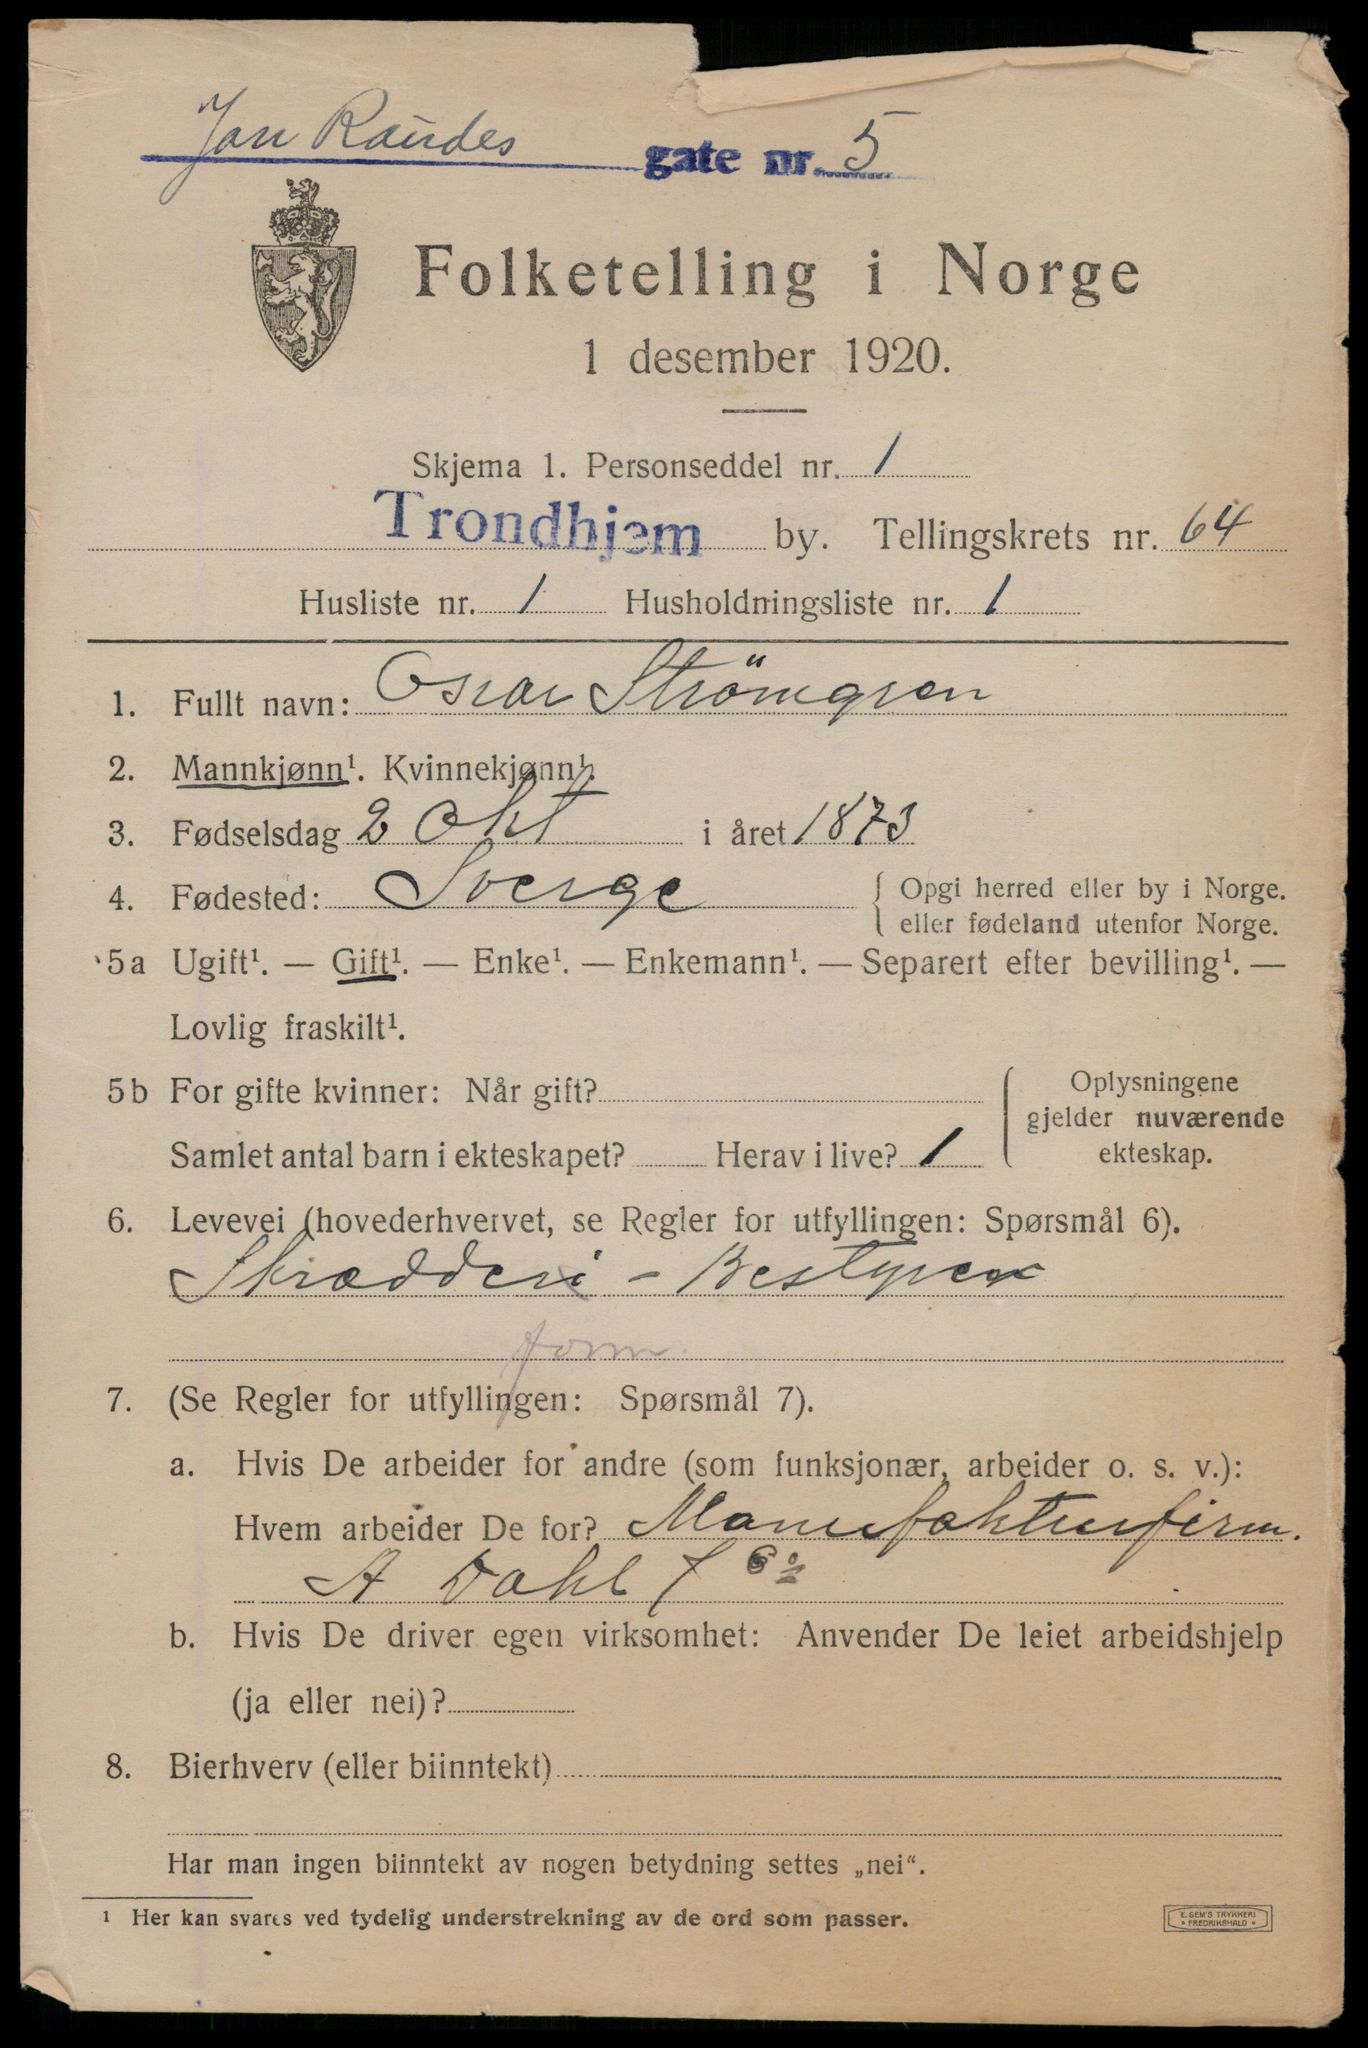 Jan Raudes gate nr. 5
Folketelling i Norge
1 desember 1920.
Skjema 1. Personseddel nr. 1
Trondhjem by. Tellingskrets nr. 64
Husliste nr. 1 Husholdningsliste nr. 1
1. Fullt navn: Oscar Strömgren
2. Mannkjønn¹. Kvinnekjønn¹.
3. Fødselsdag 2 Okt i året 1873
4. Fødested: Sverge { Opgi herred eller by i Norge.
eller fødeland utenfor Norge.
5a Ugift¹. — Gift¹. — Enke¹. — Enkemann¹. — Separert efter bevilling¹. —
Lovlig fraskilt¹.
5b For gifte kvinner: Når gift?
Samlet antal barn i ekteskapet? Herav i live? 1
Oplysningene
gjelder nuværende
ekteskap.
6. Levevei (hovederhvervet, se Regler for utfyllingen: Spørsmål 6).
Skrædderi - Bestyrer
form.
7. (Se Regler for utfyllingen: Spørsmål 7).
a. Hvis De arbeider for andre (som funksjonær, arbeider o. s. v.):
Hvem arbeider De for? Manufakturfirm.
A Dahl
b. Hvis De driver egen virksomhet: Anvender De leiet arbeidshjelp
(ja eller nei)?
8. Bierhverv (eller biinntekt)
Har man ingen biinntekt av nogen betydning settes „nei“.
¹ Her kan svares ved tydelig understrekning av de ord som passer.
E. SEM'S TRYKKERI
* FREDRIKSHALD *